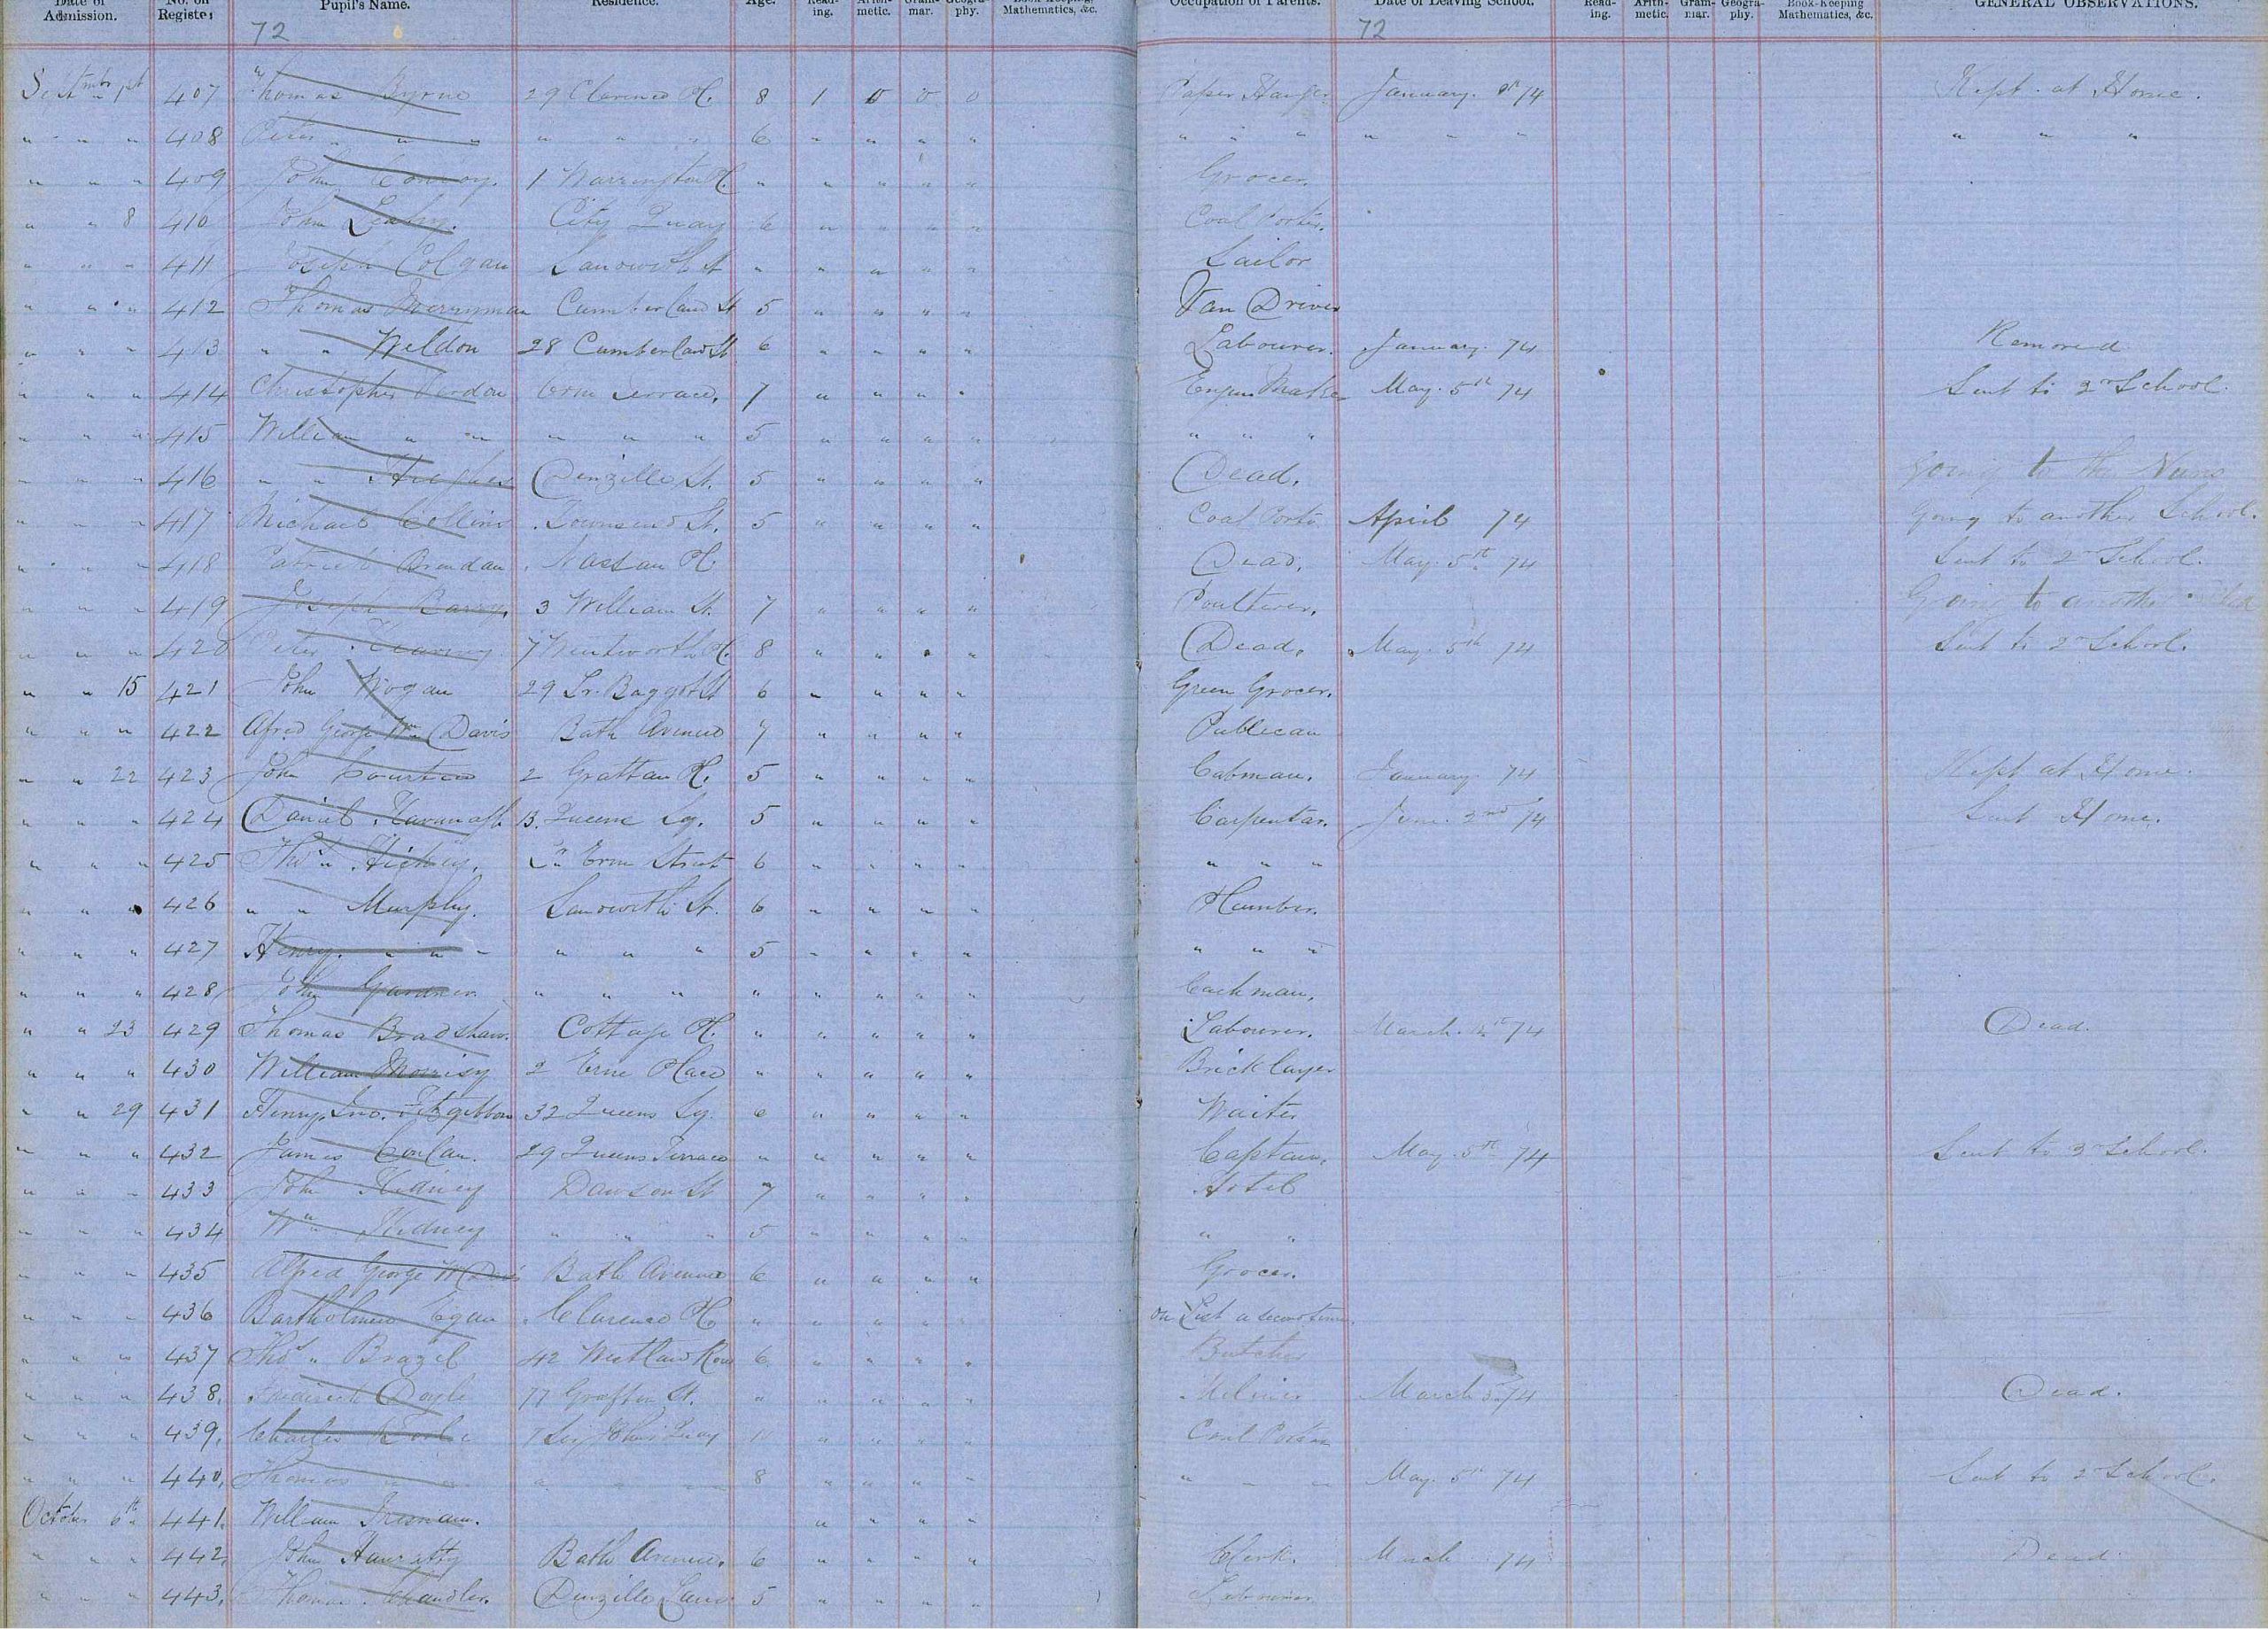 Date of Admission. No. on Register Pupil's Name. Residence. Age. Read-ing. Arith-metic. Gram-mar. Geogra-phy. Book-Keeping, Mathematics, &c. Occupation of Parents. Date of Leaving School. Read-ing. Arith-metic. Gram-mar. Geogra-phy. Book-Keeping Mathematics, &c. GENERAL OBSERVATIONS.
72 72
Septmbr 1st 407 Thomas Byrne 29 Clarence Pl. 8 1 0 0 0 Paper Hanger January 74 Kept at Home.
" " " 408 Peter " " " " " 6 " " " " " " " " " " " " "
" " " 409 John Conroy. 1 Warrington Pl. " " " " " Grocer.
" " 8 410 John Leahy. City Quay 6 " " " " Coal Porter.
" " " 411 Joseph Colgan Sandwith St " " " " " Sailor
" " " 412 Thomas Merryman Cumberland St 5 " " " " Van Driver
" " " 413 " " Weldon 28 Cumberland St 6 " " " " Labourer. January 74 Removed
" " " 414 Christopher Erne Terrace, 7 " " " " Engine Maker May 5th 74 Sent to 2nd School.
" " " 415 William " " " " " 5 " " " " " " "
" " " 416 " " Hughes Denzille St. 5 " " " " Dead. Going to the Nuns
" " " 417 Michael Collins Townsend St. 5 " " " " Coal Porter April 74 Going to another School.
" " " 418 Patrick Brendan Nassau Pl. Dead. May 5th 74 Sent to 2nd School.
" " " 419 Joseph Barry. 3 William St. 7 " " " " Poulterer. Going to another
" " " 420 Peter 7 Wentworth Pl. 8 " " " " Dead. May 5th 74 Sent to 2nd School.
" " 15 421 John Wogan 29 Lr. Baggot St 6 " " " " Green Grocer.
" " " 422 Alfred George Wm Davis Bath Avenue 7 " " " " Publican
" " 22 423 John 2 Grattan Pl. 5 " " " " Cabman. January 74 Kept at Home.
" " " 424 Daniel Kavanagh 13. Queens Sq. 5 " " " " Carpenter. June 2nd 74 Sent Home.
" " " 425 Thos " Hickey. Erne Street 6 " " " " " " "
" " " 426 " " Murphy. Sandwith St. 6 " " " " Plumber.
" " " 427 Henry. " " " " " 5 " " " " " " "
" " " 428 John Gardner. " " " " " " " " Coachman.
" " 23 429 Thomas Bradshaw. Cottage Pl. " " " " " Labourer. March 74 Dead.
" " " 430 William Morrisy 2 Erne Place " " " " " Bricklayer
" " 29 431 Henry Jno. Fitzgibbon 32 Queens Sq. 6 " " " " Waiter
" " " 432 James Conlan. 29 Queens Terrace " " " " " Captain. May 5th 74 Sent to 3rd School.
" " " 433 John Kidney Dawson St 7 " " " " Hotel
" " " 434 Wm Kidney " " " 5 " " " " " "
" " " 435 Alfred George W Davis Bath Avenue 6 " " " " Grocer.
" " " 436 Bartholmew Egan Clarence Pl. " " " " " on List a second time.
" " " 437 Thos " Brazel 42 Westland Row 6 " " " " Butcher
" " " 438. Doyle 77 Grafton St. " " " " " March 74 Dead.
" " " 439. Charles Sir Johns Quay " " " " Coal Porter
" " " 440. Thomas " " " " " 8 " " " " " " " May 5th 74 Sent to 2nd School.
October 6th 441. William " " " "
" " " 442. John Hanratty Bath Avenue. 6 " " " " Clerk. March 74 Dead.
" " " 443. Thomas Chandler. Denzille Lane 5 " " " " Labourer